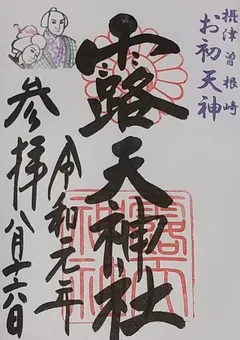 摂津曽根崎
お初天神
露天神社
令和元年
八月十六日
参拝
露天
神社